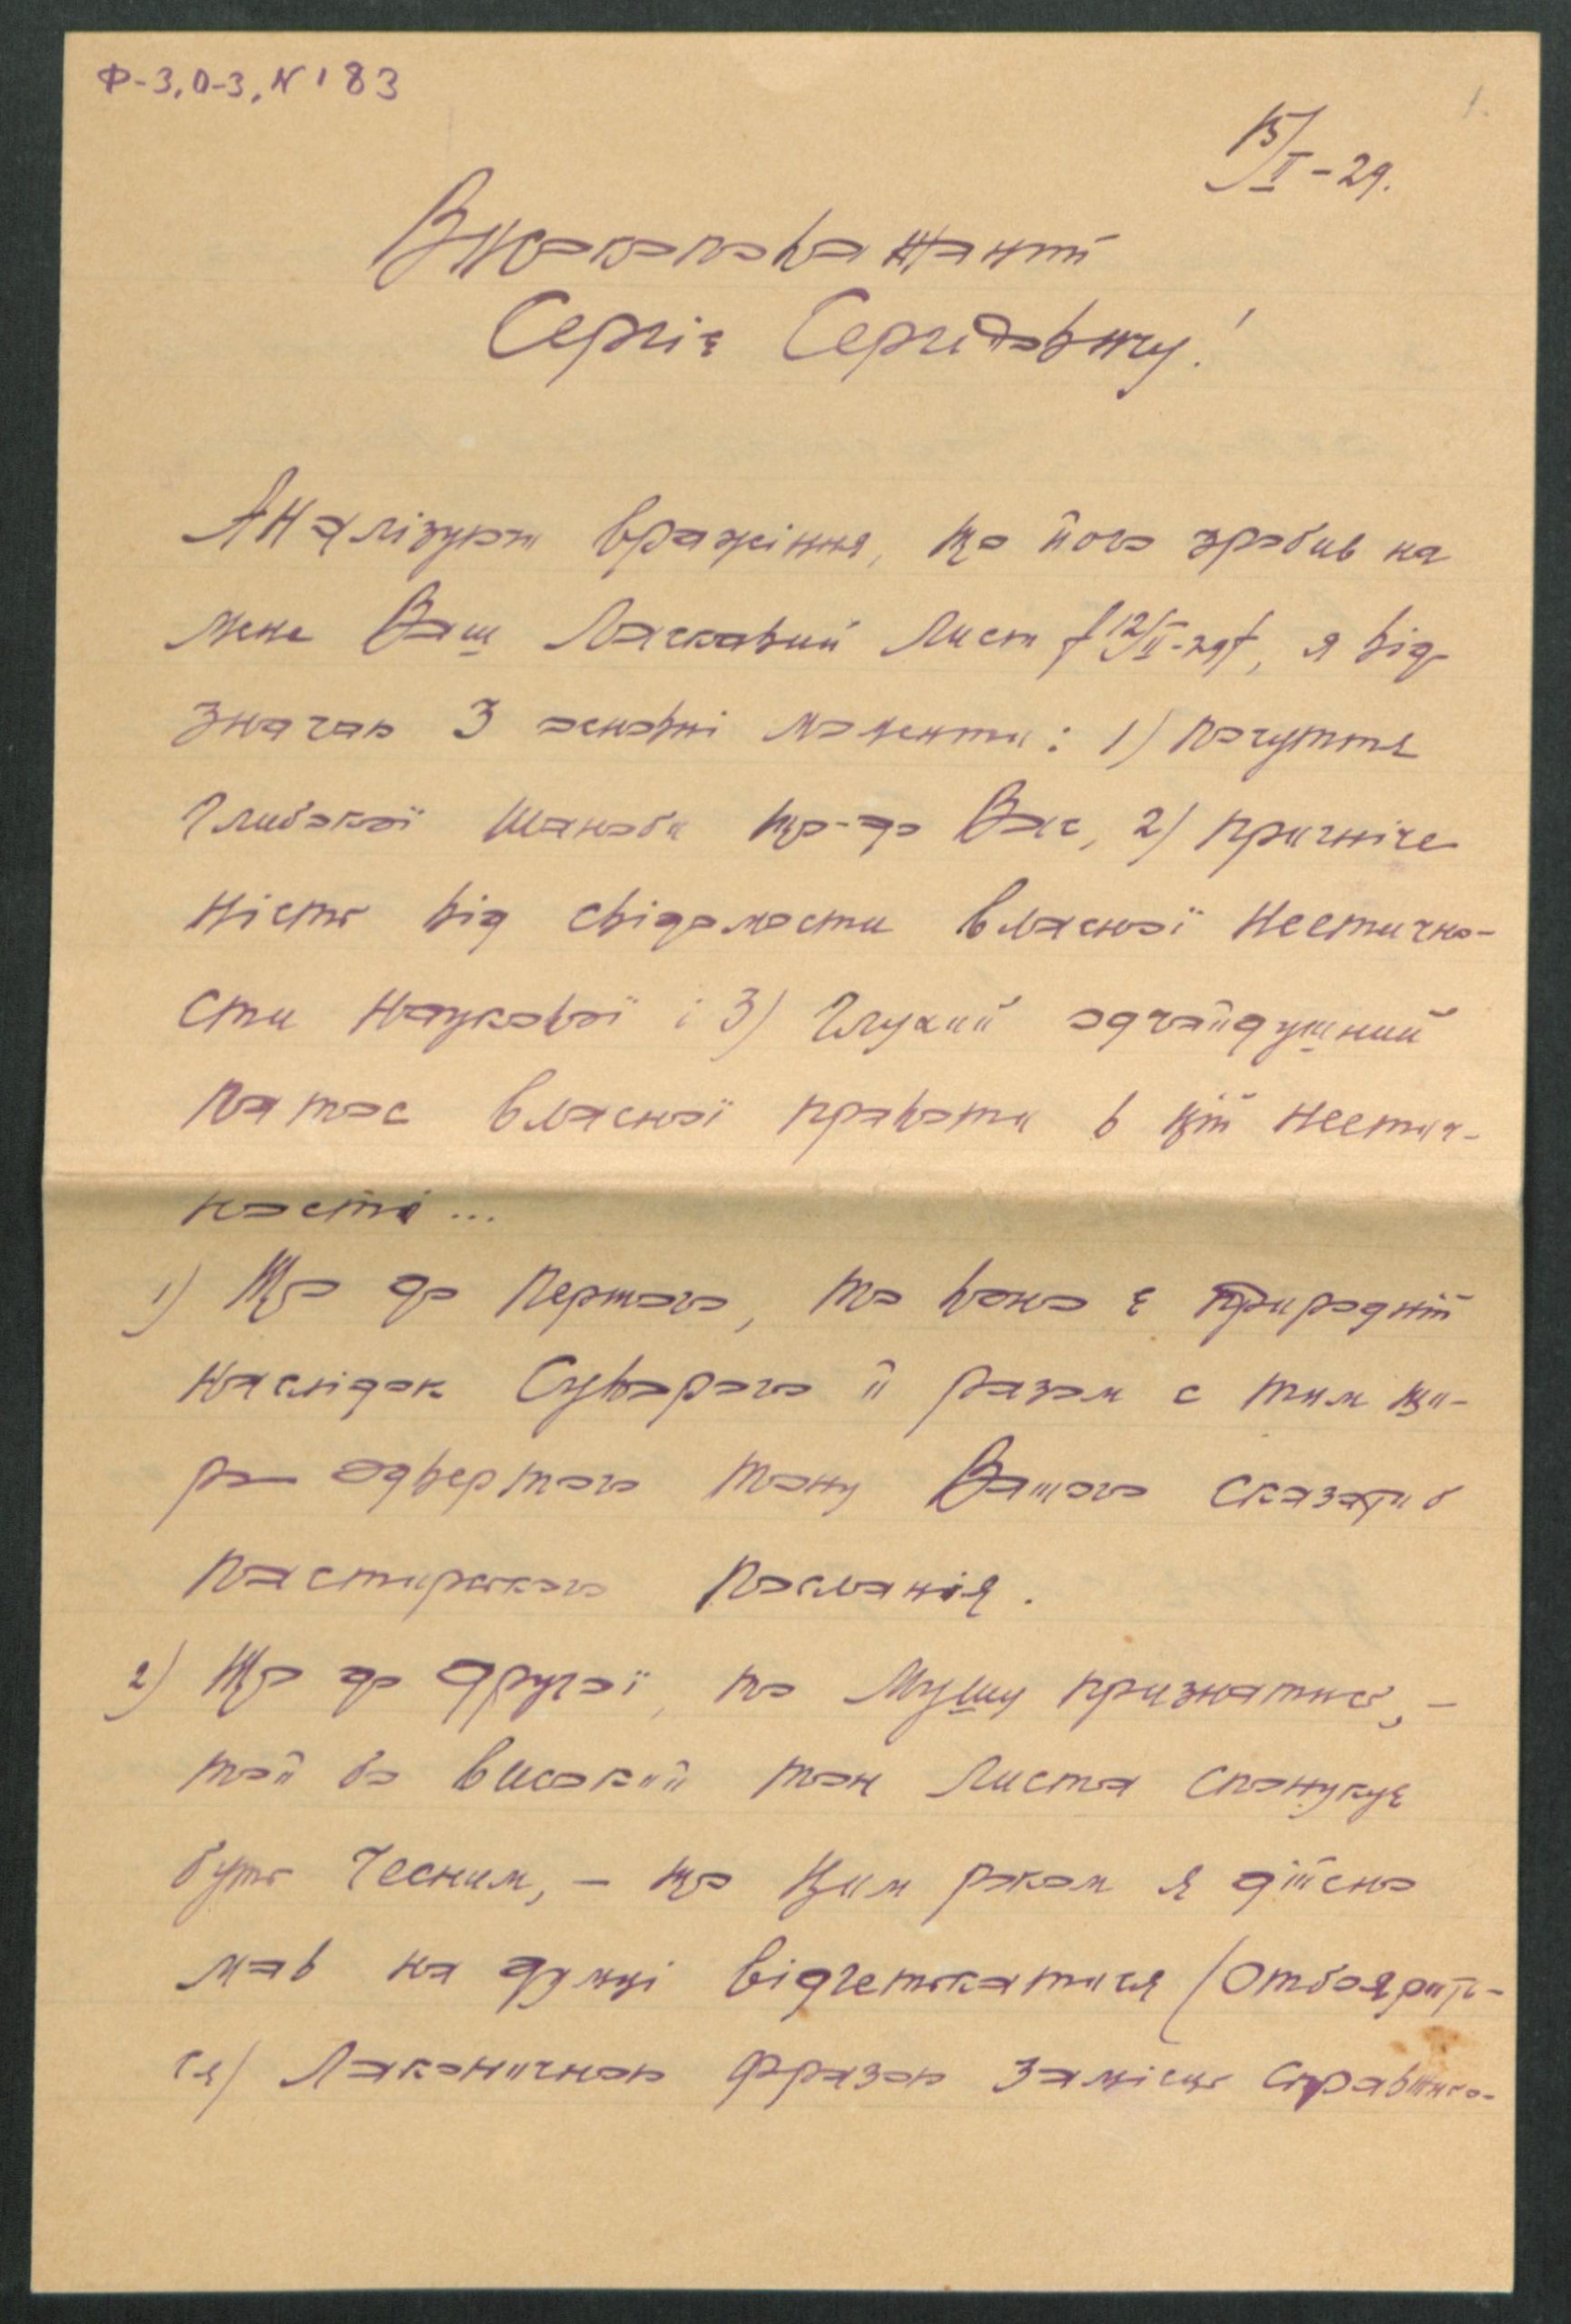 Ф-3, О-3, № 183
1.
15/II-29.
Високоповажаний
Сергіє Сергійовичу!
Аналізуючи враження, що його зробив на
мене Ваш Ласкавий Лист /12/II-29/, я від-
значаю 3 основні моменти: 1) почуття
Глибокої Шаноби що-до Вас, 2) пригніче-
ність від свідомости власної неетично-
сти наукової і 3) Глухий одчайдушний
патос власної правоти в цій неетич-
ности ...
1) Що до Першого, то воно є природній
наслідок Суворого й разом с тим щи-
ро одвертого тону Вашого сказати б
пастирського посланія.
2) Що до Другої, то мушу признатись, –
той бо високий тон листа спонукує
бути чесним, – що цим роком я дійсно
мав на думці відчетькатися (отбоярить-
ся) Лаконичною фразою замісць справжньо-